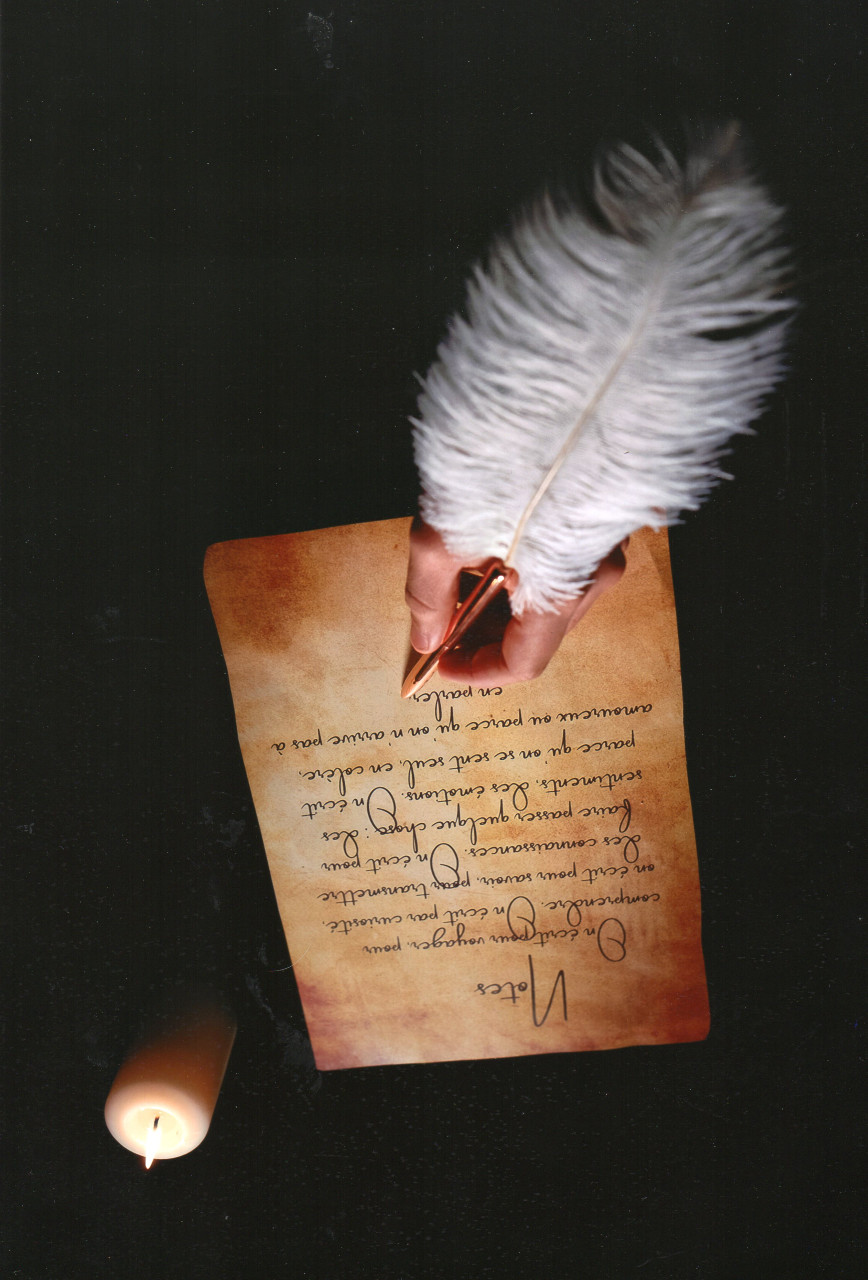 Notes
On écrit pour voyager, pour
comprendre. On écrit par curiosité,
on écrit pour savoir, pour transmettre
des connaissances. On écrit pour
faire passer quelque chose : des
sentiments, des émotions. On écrit
parce qu'on se sent seul, en colère,
amoureux ou parce qu'on n'arrive pas à
en parler